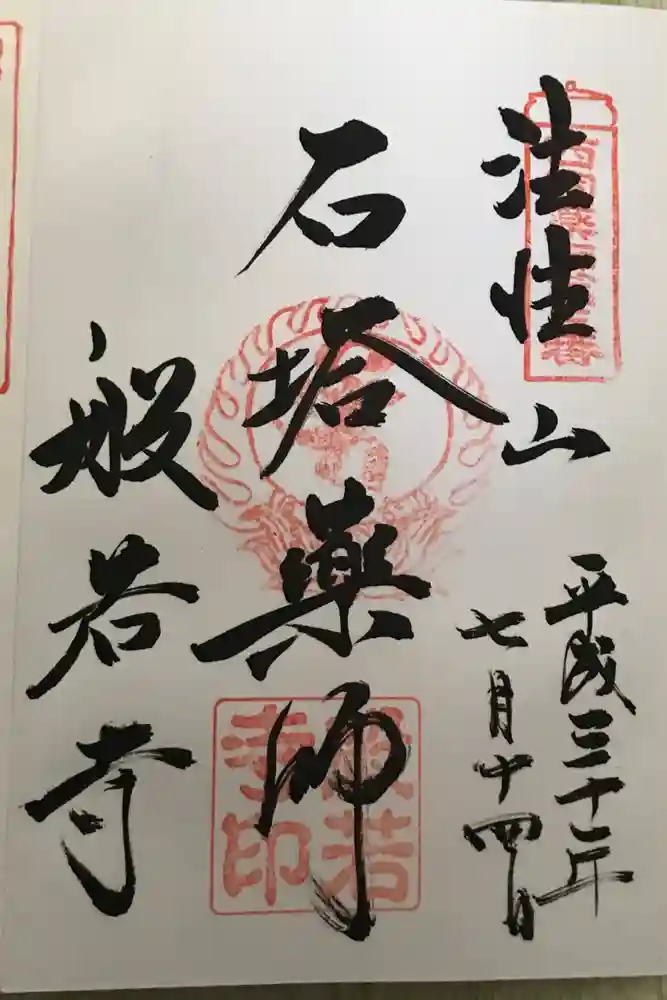 法性山
平成三十年
七月十四日
石塔薬師
般若寺
般若寺印